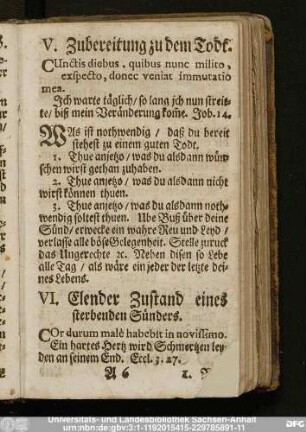 V. Zubereitung zu dem Todt.
CUnctis diebus, quibus nunc milito,
exspecto, donec veniat immutatio
mea.
Jch warte täglich / so lang jch nun streit-
te / biß mein Veränderung kom̃e. Job. 14.
WAs ist nothwendig / daß du bereit
stehest zu einem guten Todt.
1. Thue anjetzo / was du alsdann wün-
schen wirst gethan zuhaben.
2. Thue anjetzo / was du alsdann nicht
wirst können thuen.
3. Thue anjetzo / was du alsdann noth-
wendig soltest thuen. Ube Buß über deine
Sünd / erwecke ein wahre Reu und Leyd /
verlasse alle böse Gelegenheit. Stelle zuruck
das Ungerechte ꝛc. Neben disen so Lebe
alle Tag / als wäre ein jeder der letzte dei-
nes Lebens.
VI. Elender Zustand eines
sterbenden Sünders.
COr durum malè habebit in novissimo.
Ein hartes Hertz wird Schmertzen ley-
den an seinem End. Eccl. 3. 27.
A 6 1.
Universitäts- und Landesbibliothek Sachsen-Anhalt
urn:nbn:de:gbv:3:1-1192015415-229785891-11
DFG